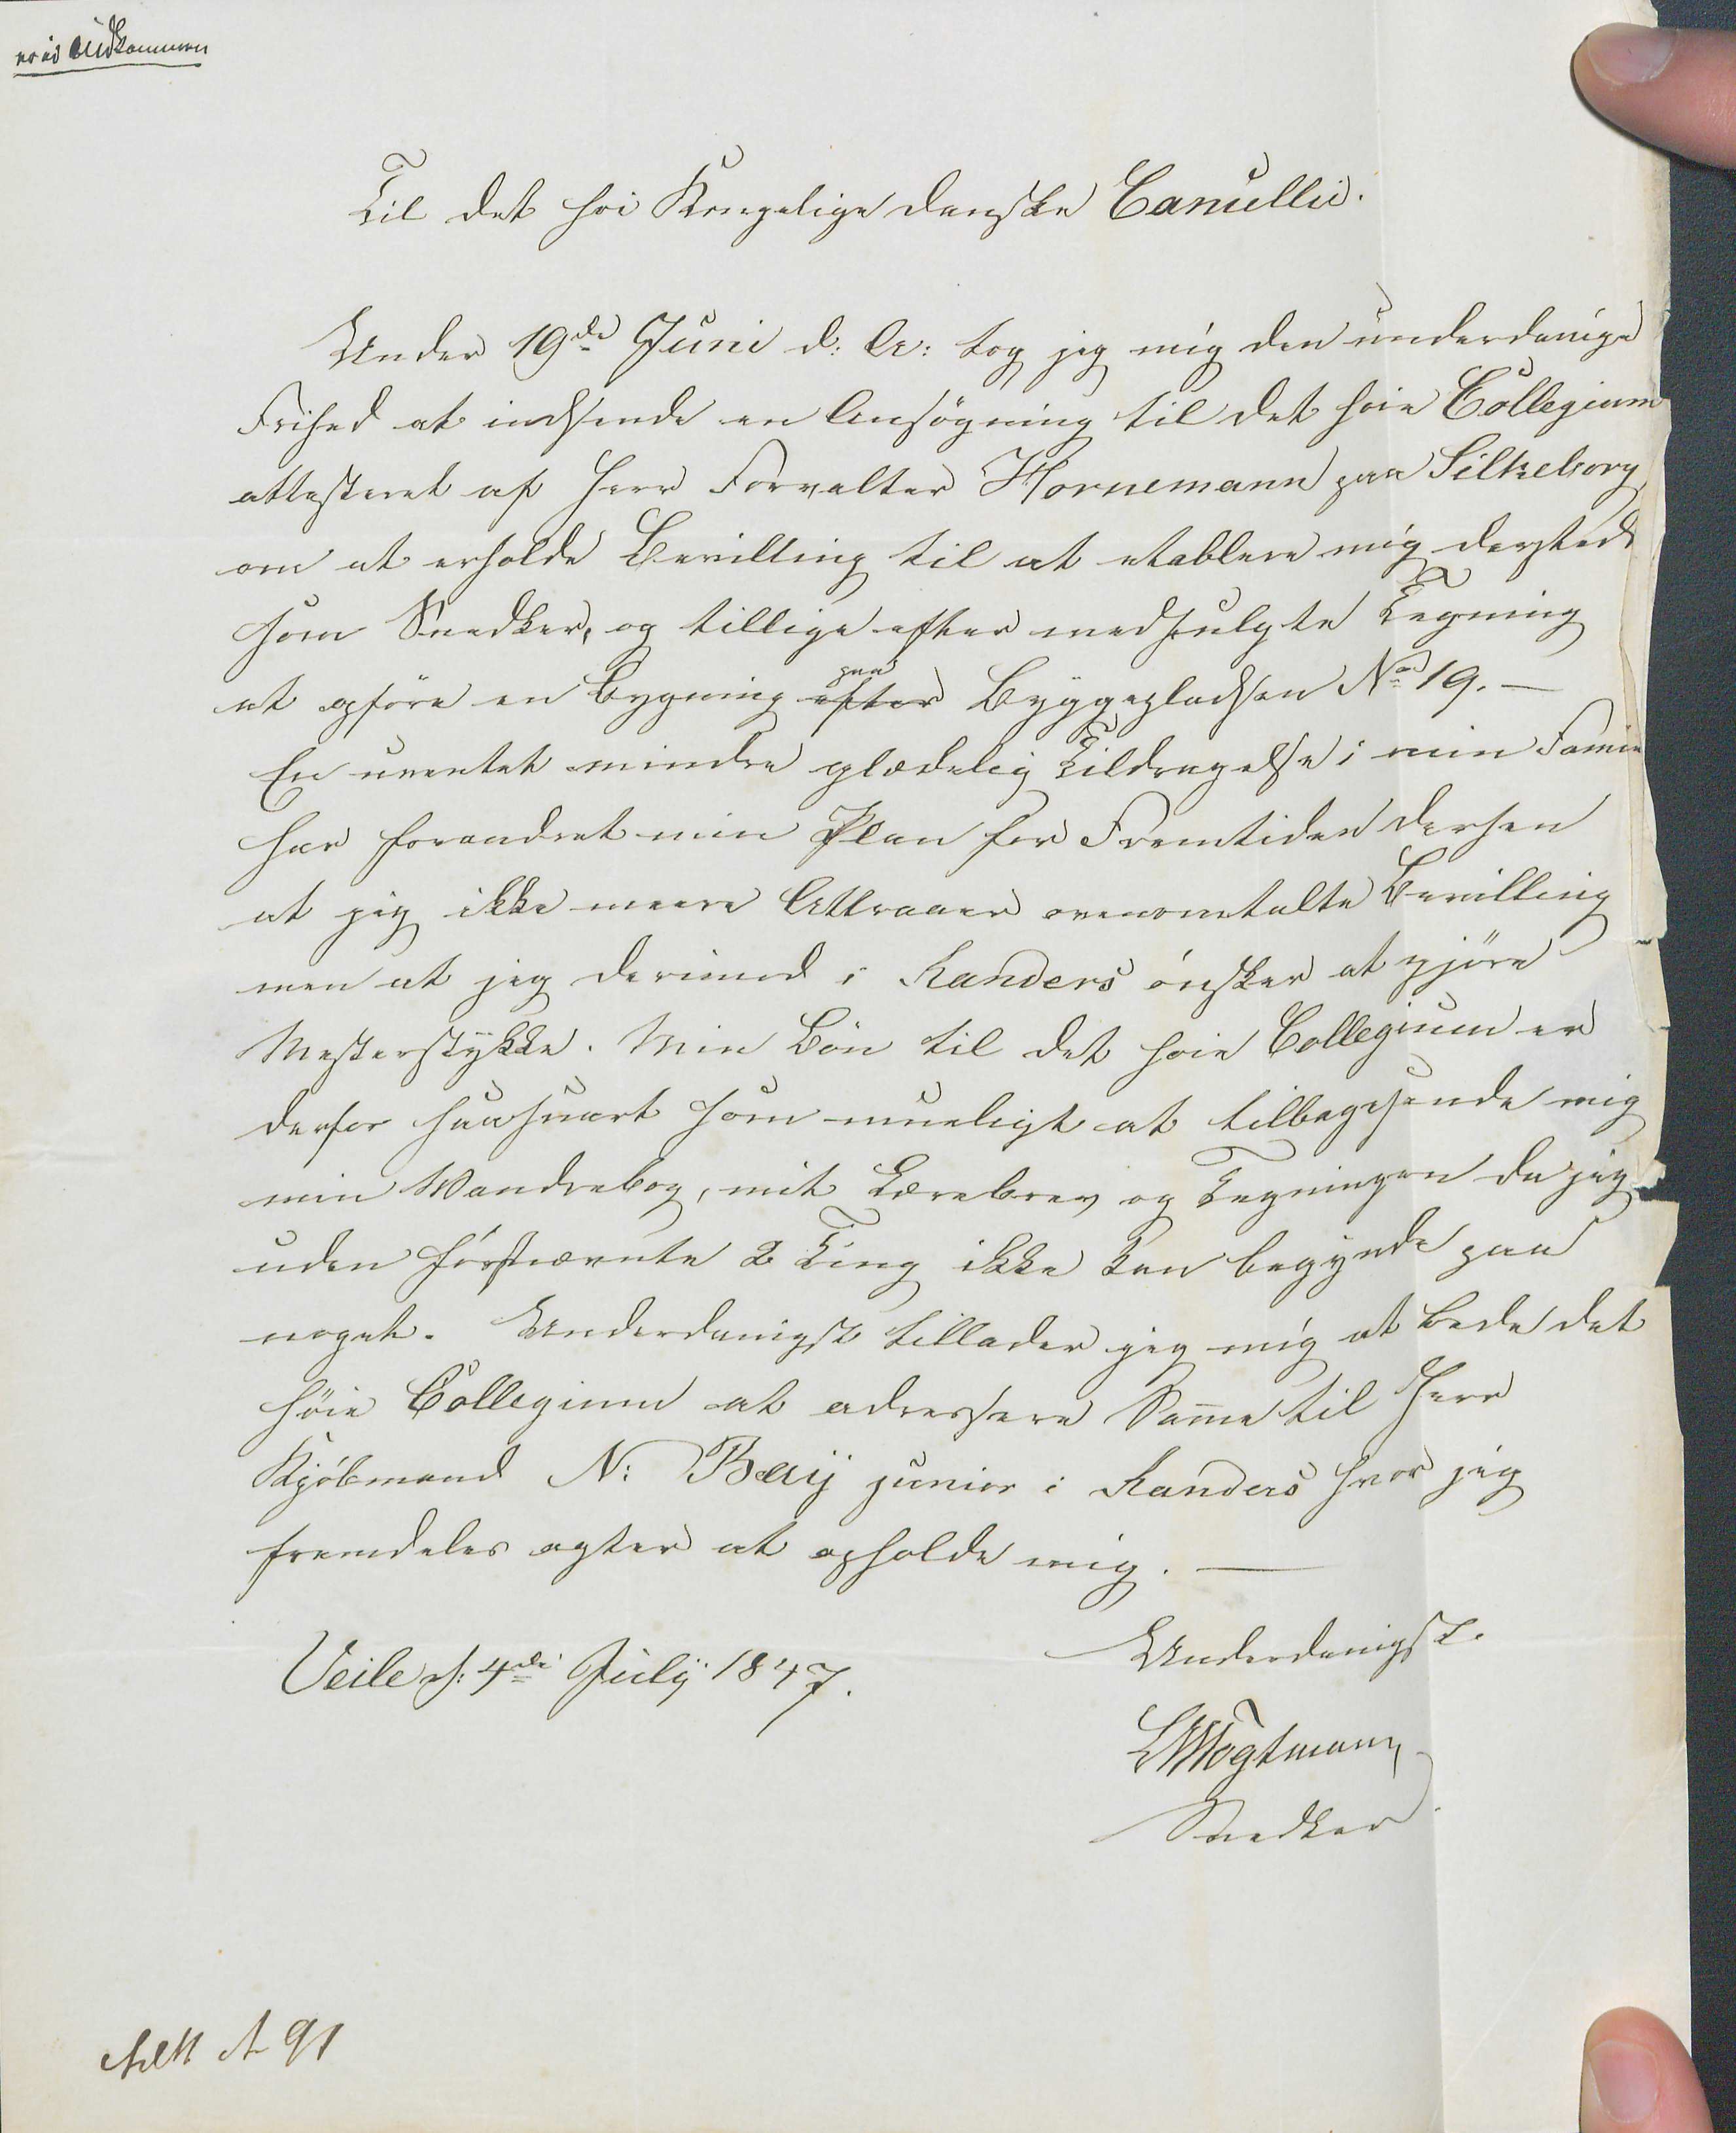 Udkommen
Til det høi Kongelige danske Cancellie.
Under 19de Juni d: A: tog jeg mig den underdanige
Frihed at indsende en Ansögning til det høie Collegium
attesteret af Herr Forvalter Hornemann paa Silkeborg
om at erholde Bevilling til at etablere mig dersteds
som Snedker, og tillige efter medfulgte Tegning
at opføre en Bygning efter paa Byggepladsen No 19. —
En uventet mindre glædelig Tildragelse i min Famie
har forandret min Plan for Fremtiden derhen
at jeg ikke meere Attraaer ovenomtalte Bevilling
men at jeg derimod i Randers ønsker at gjöre
Mesterstykke. Min Bön til det høie Collegium er
derfor saasnart som mueligt at tilbagesende mig
min Wandrebog, mit Lærebrev og Tegningen da jeg
uden förstnævnte 2 Ting ikke kan begynde paa
noget. Underdanigst tillader jeg mig at bede det
höie Collegium at adressere Samme til Herr
Kjöbmand N: Bay junior i Randers hvor jeg
fremdeles agter at opholde mig. —
Veile d: 4de July 1847.
Underdanigst.
Wogtmann
Snedker
A 91